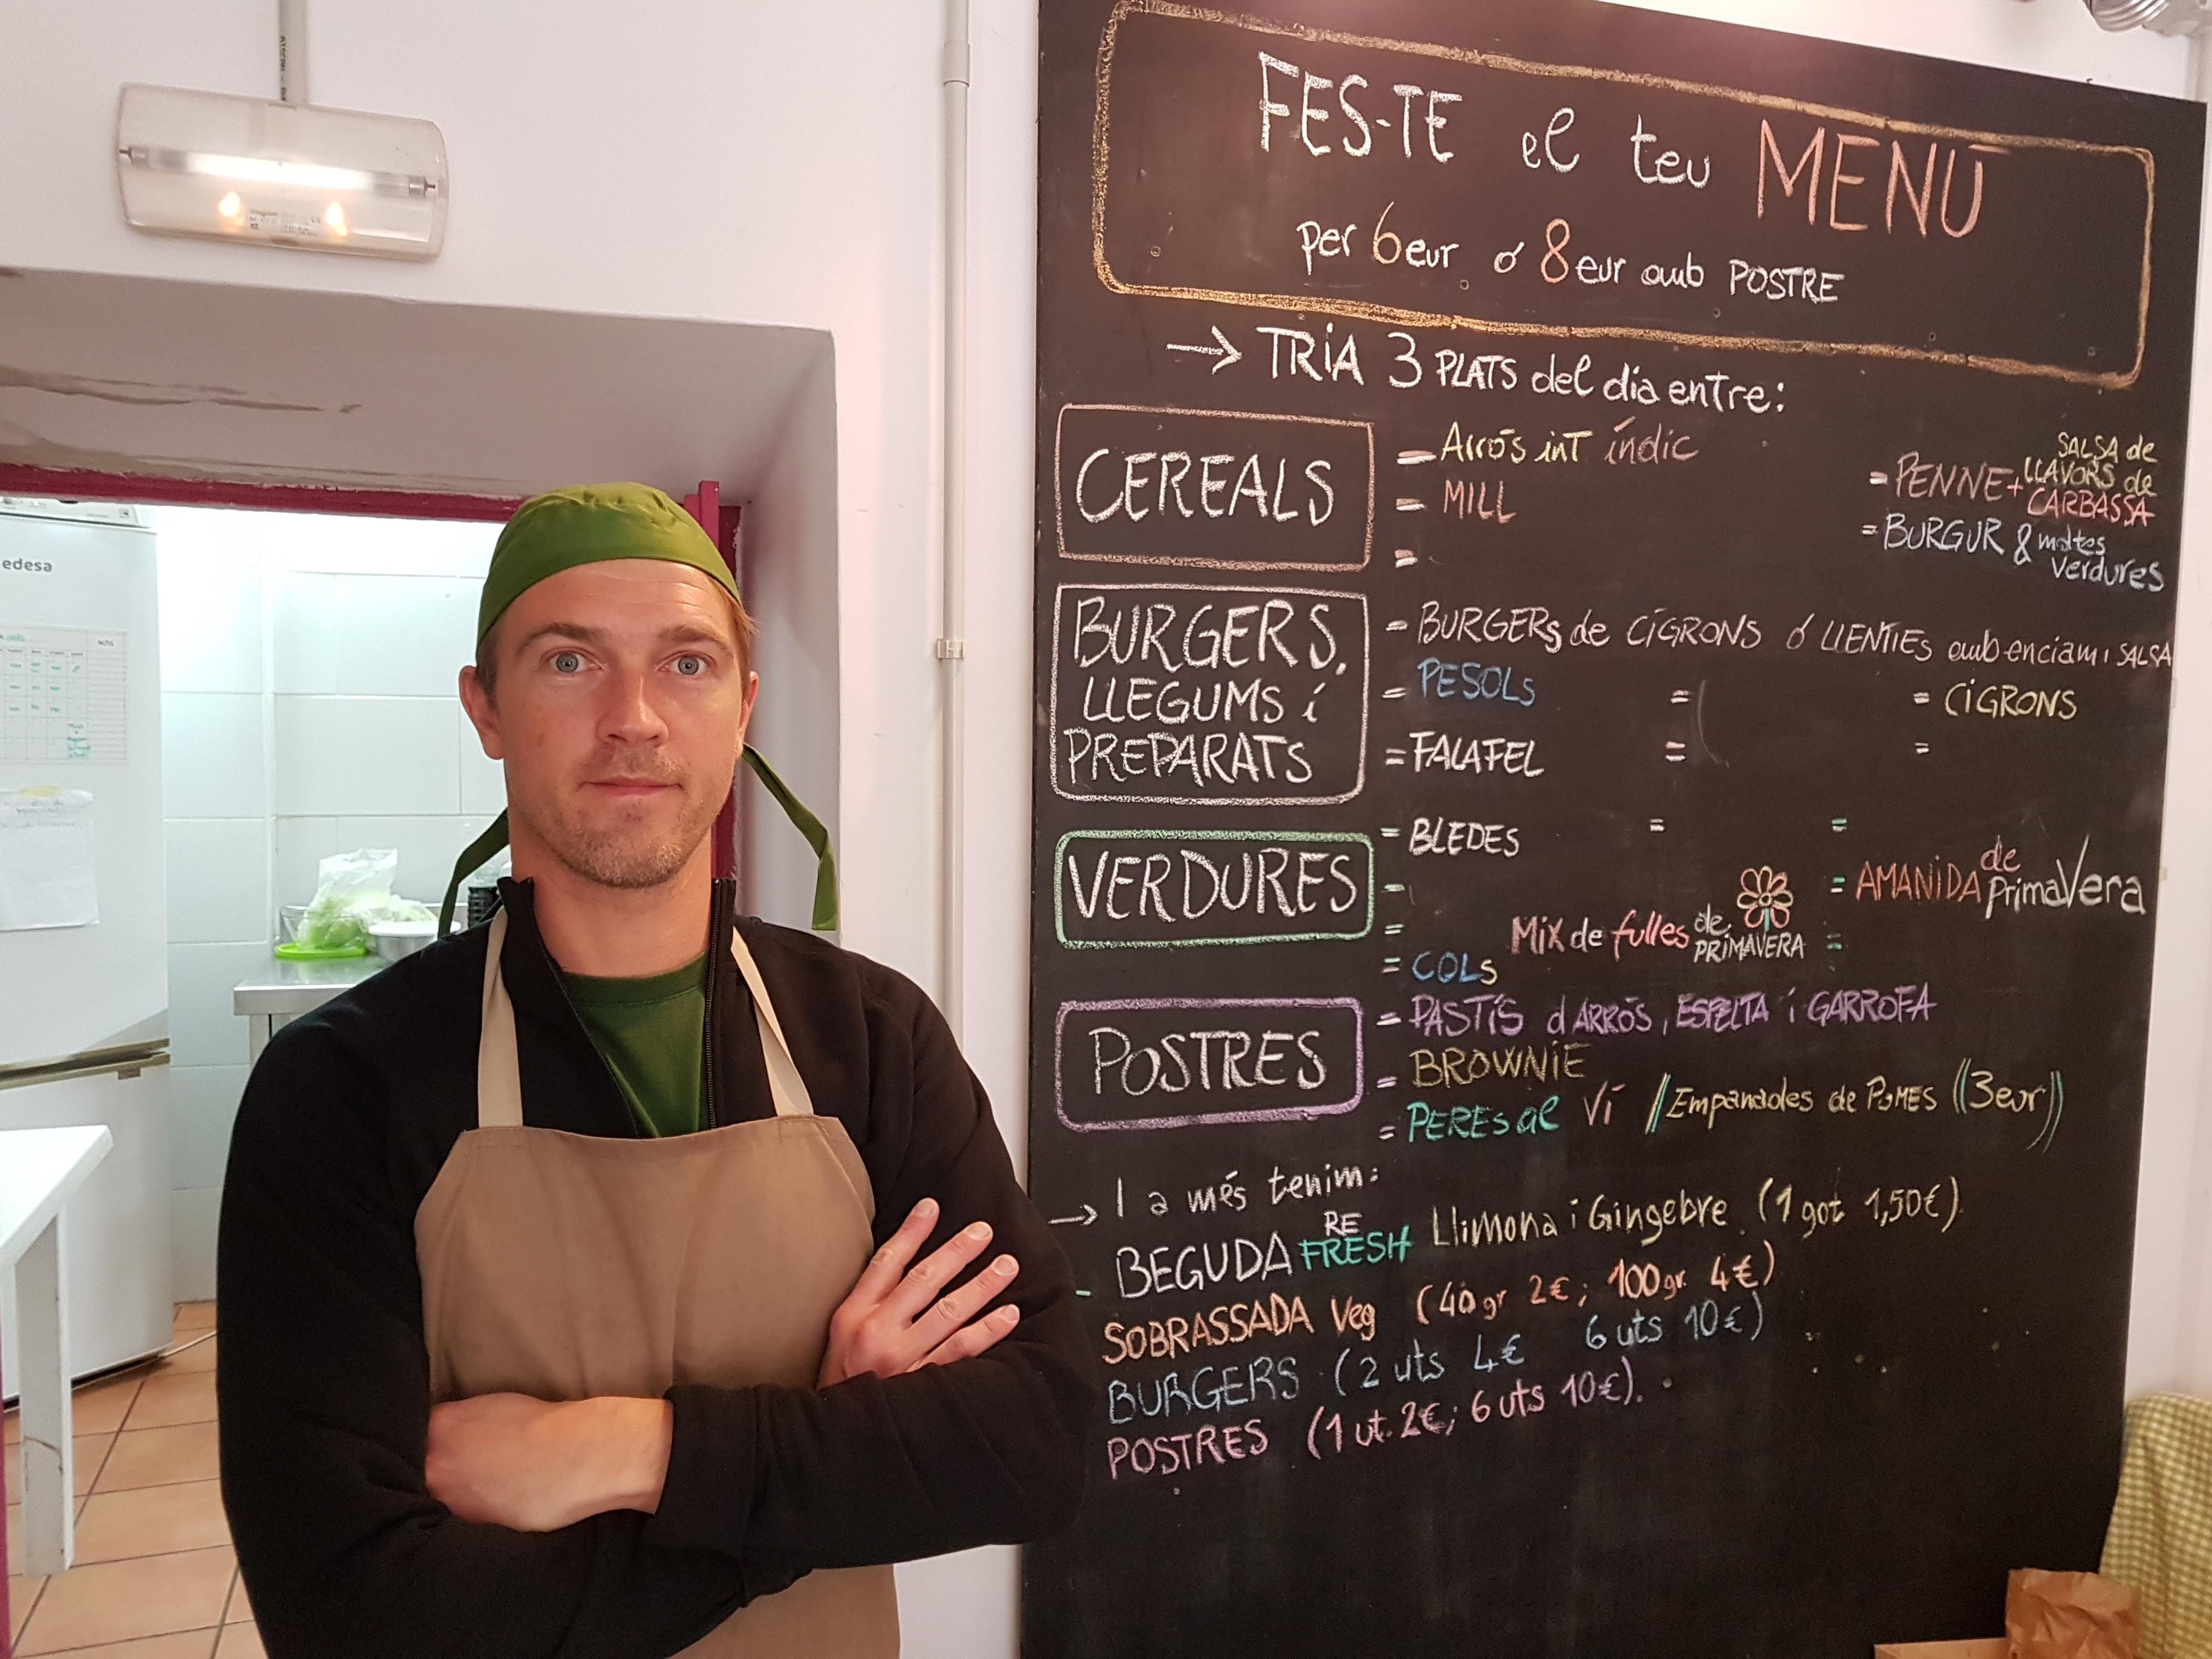 FES-TE el teu MENÚ
per 6eur ó 8eur amb POSTRE
→ TRIA 3 PLATS del dia entre:
CEREALS
= Arròs inT índic
= MILL
=
= PENNE + SALSA de LLAVORS de CARBASSA
= BURGUR & moltes verdures
BURGERS,
LLEGUMS i
PREPARATS
= BURGERs de CIGRONS ó LLENTIEs amb enciam i SALSA
= PESOLs = = CIGRONS
= FALAFEL = =
VERDURES
= BLEDES = =
= = AMANIDA de primaVera
= Mix de fulles de PRIMAVERA =
= COLs
POSTRES
= PASTíS d ARRÒS, ESPELTA i GARROFA
= BROWNIE
= PERES al Ví // Empanades de PoMES ((3eur))
→ I a més tenim:
- BEGUDA REFRESH Llimona i Gingebre (1 got 1,50€).
SOBRASSADA Veg (40gr 2€; 100gr. 4€)
BURGERS (2 uts 4€ 6 uts 10€)
POSTRES (1 ut. 2€; 6 uts 10€).
edesa